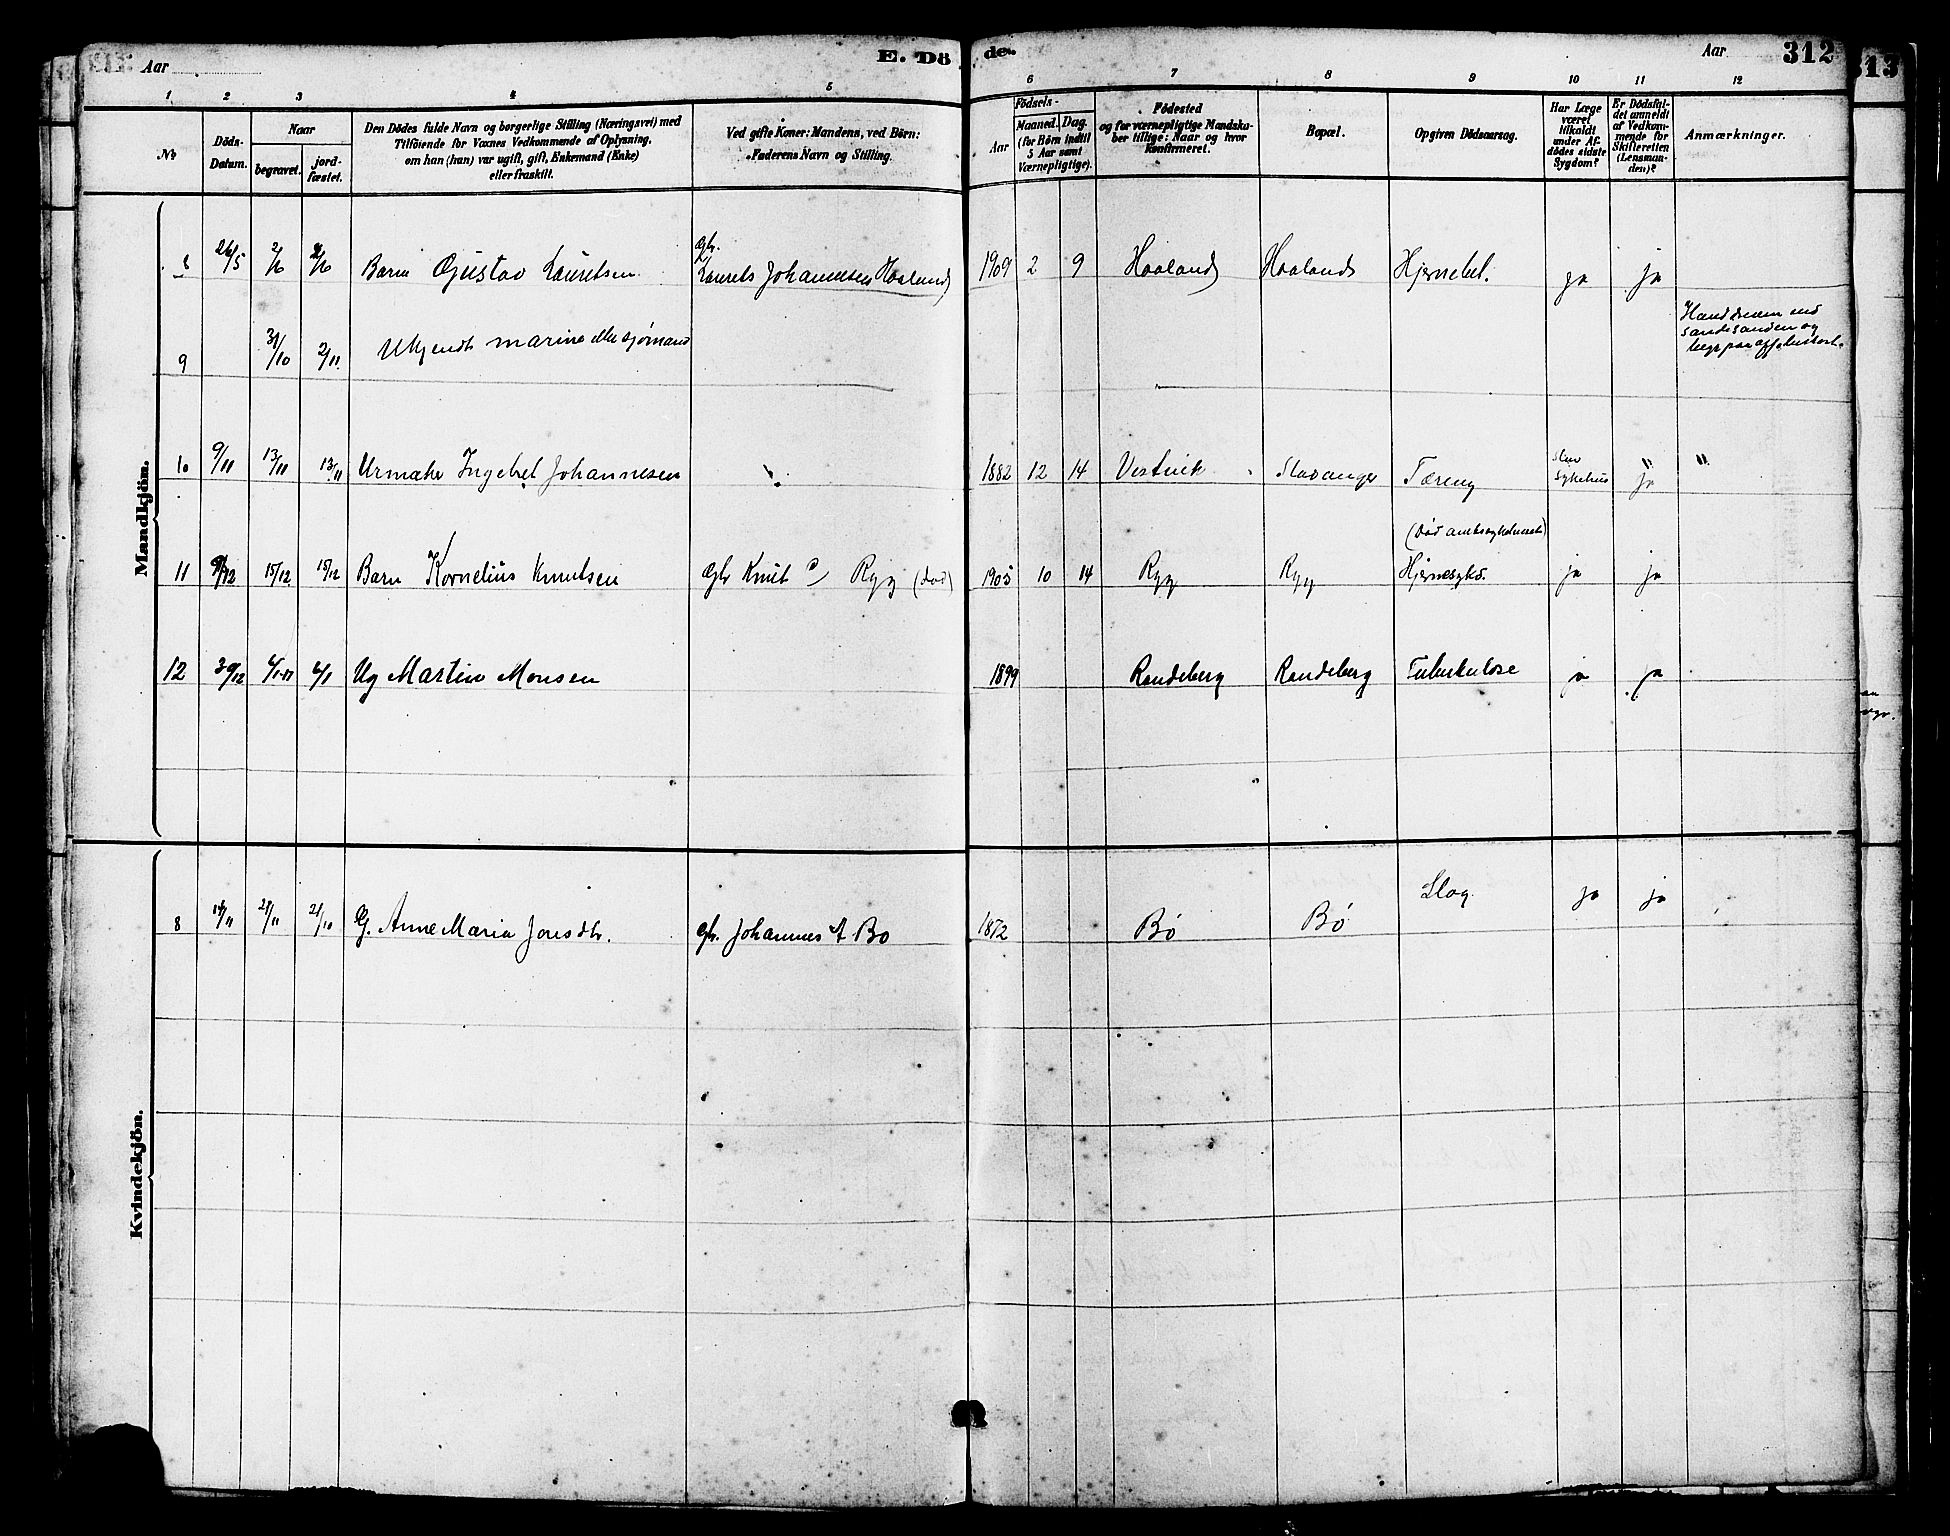 Aar
E. Dö
de.
Aar
312
313
1 2 3 4 5 6 7 8 9 10 11 12
No
Döds-Datum.
Naar
begravet.
jord-fæstet.
Den Dödes fulde Navn og borgerlige Stilling (Næringsvei) med
Tilföiende for Voxnes Vedkommende af Oplysning,
om han (hun) var ugift, gift, Enkemand (Enke)
eller fraskilt.
Ved gifte Koner: Mandens, ved Börn:
Faderens Navn og Stilling.
Födsels-
Aar
Maaned. Dag.
(for Börn indtil
5 Aar samt
Værnepligtige).
Födested
og for værnepligtige Mandska-
ber tillige: Naar og hvor
Konfirmeret.
Bopæl.
Opgiven Dödsaarsag.
Har Læge
været
tilkaldt
under Af-
dödes sidste
Sygdom?
Er Dödsfal-
det anmeldt
af Vedkom-
mende for
Skifteretten
(Lensman-
den)?
Anmærkninger.
Mandkjön.
8 26/5 2/6 2/6 Barn Gustav Lauretsen Gbr. Laurets Johannesen Haaland 1909 2 9 Haaland Haaland Hjernebet. ja ja
9 31/10 2/11 Ukjendt marine eller sjömand
10 9/11 13/11 13/11 Urmaker Ingebret Johannesen " 1882 12 14 Vestvik Stavanger Tæring Sykehus ja "
11 9/12 15/12 15/12 Barn Kornelius Knutsen Gbr Knut Ryg (död) 1905 10 14 Ryg Ryg Hjernesykd. ja ja
12 30/12 6/1-17 6/1 Ug Martin Monsen 1899 Randeberg Randeberg Tuberkulose ja ja
Kvindekjön.
8 14/11 21/11 21/11 G. Anne Maria Jonsdtr. gbr. Johannes A Bö 1872 Bö Bö Slag ja ja